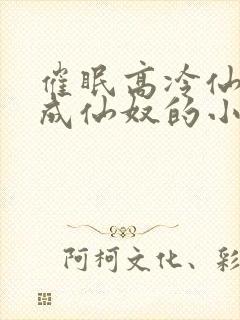 催眠高冷仙
成仙奴的小
阿柯文化、彩